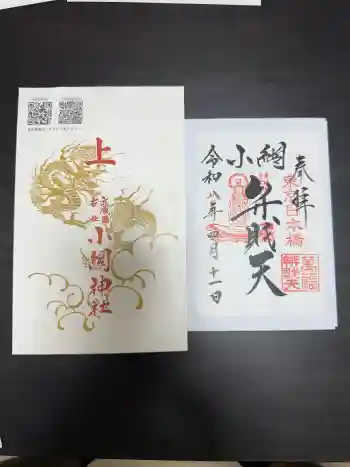 上
武蔵國
古社
小網神社
奉拝
東京日本橋
小網
弁財天
令和八年四月十一日